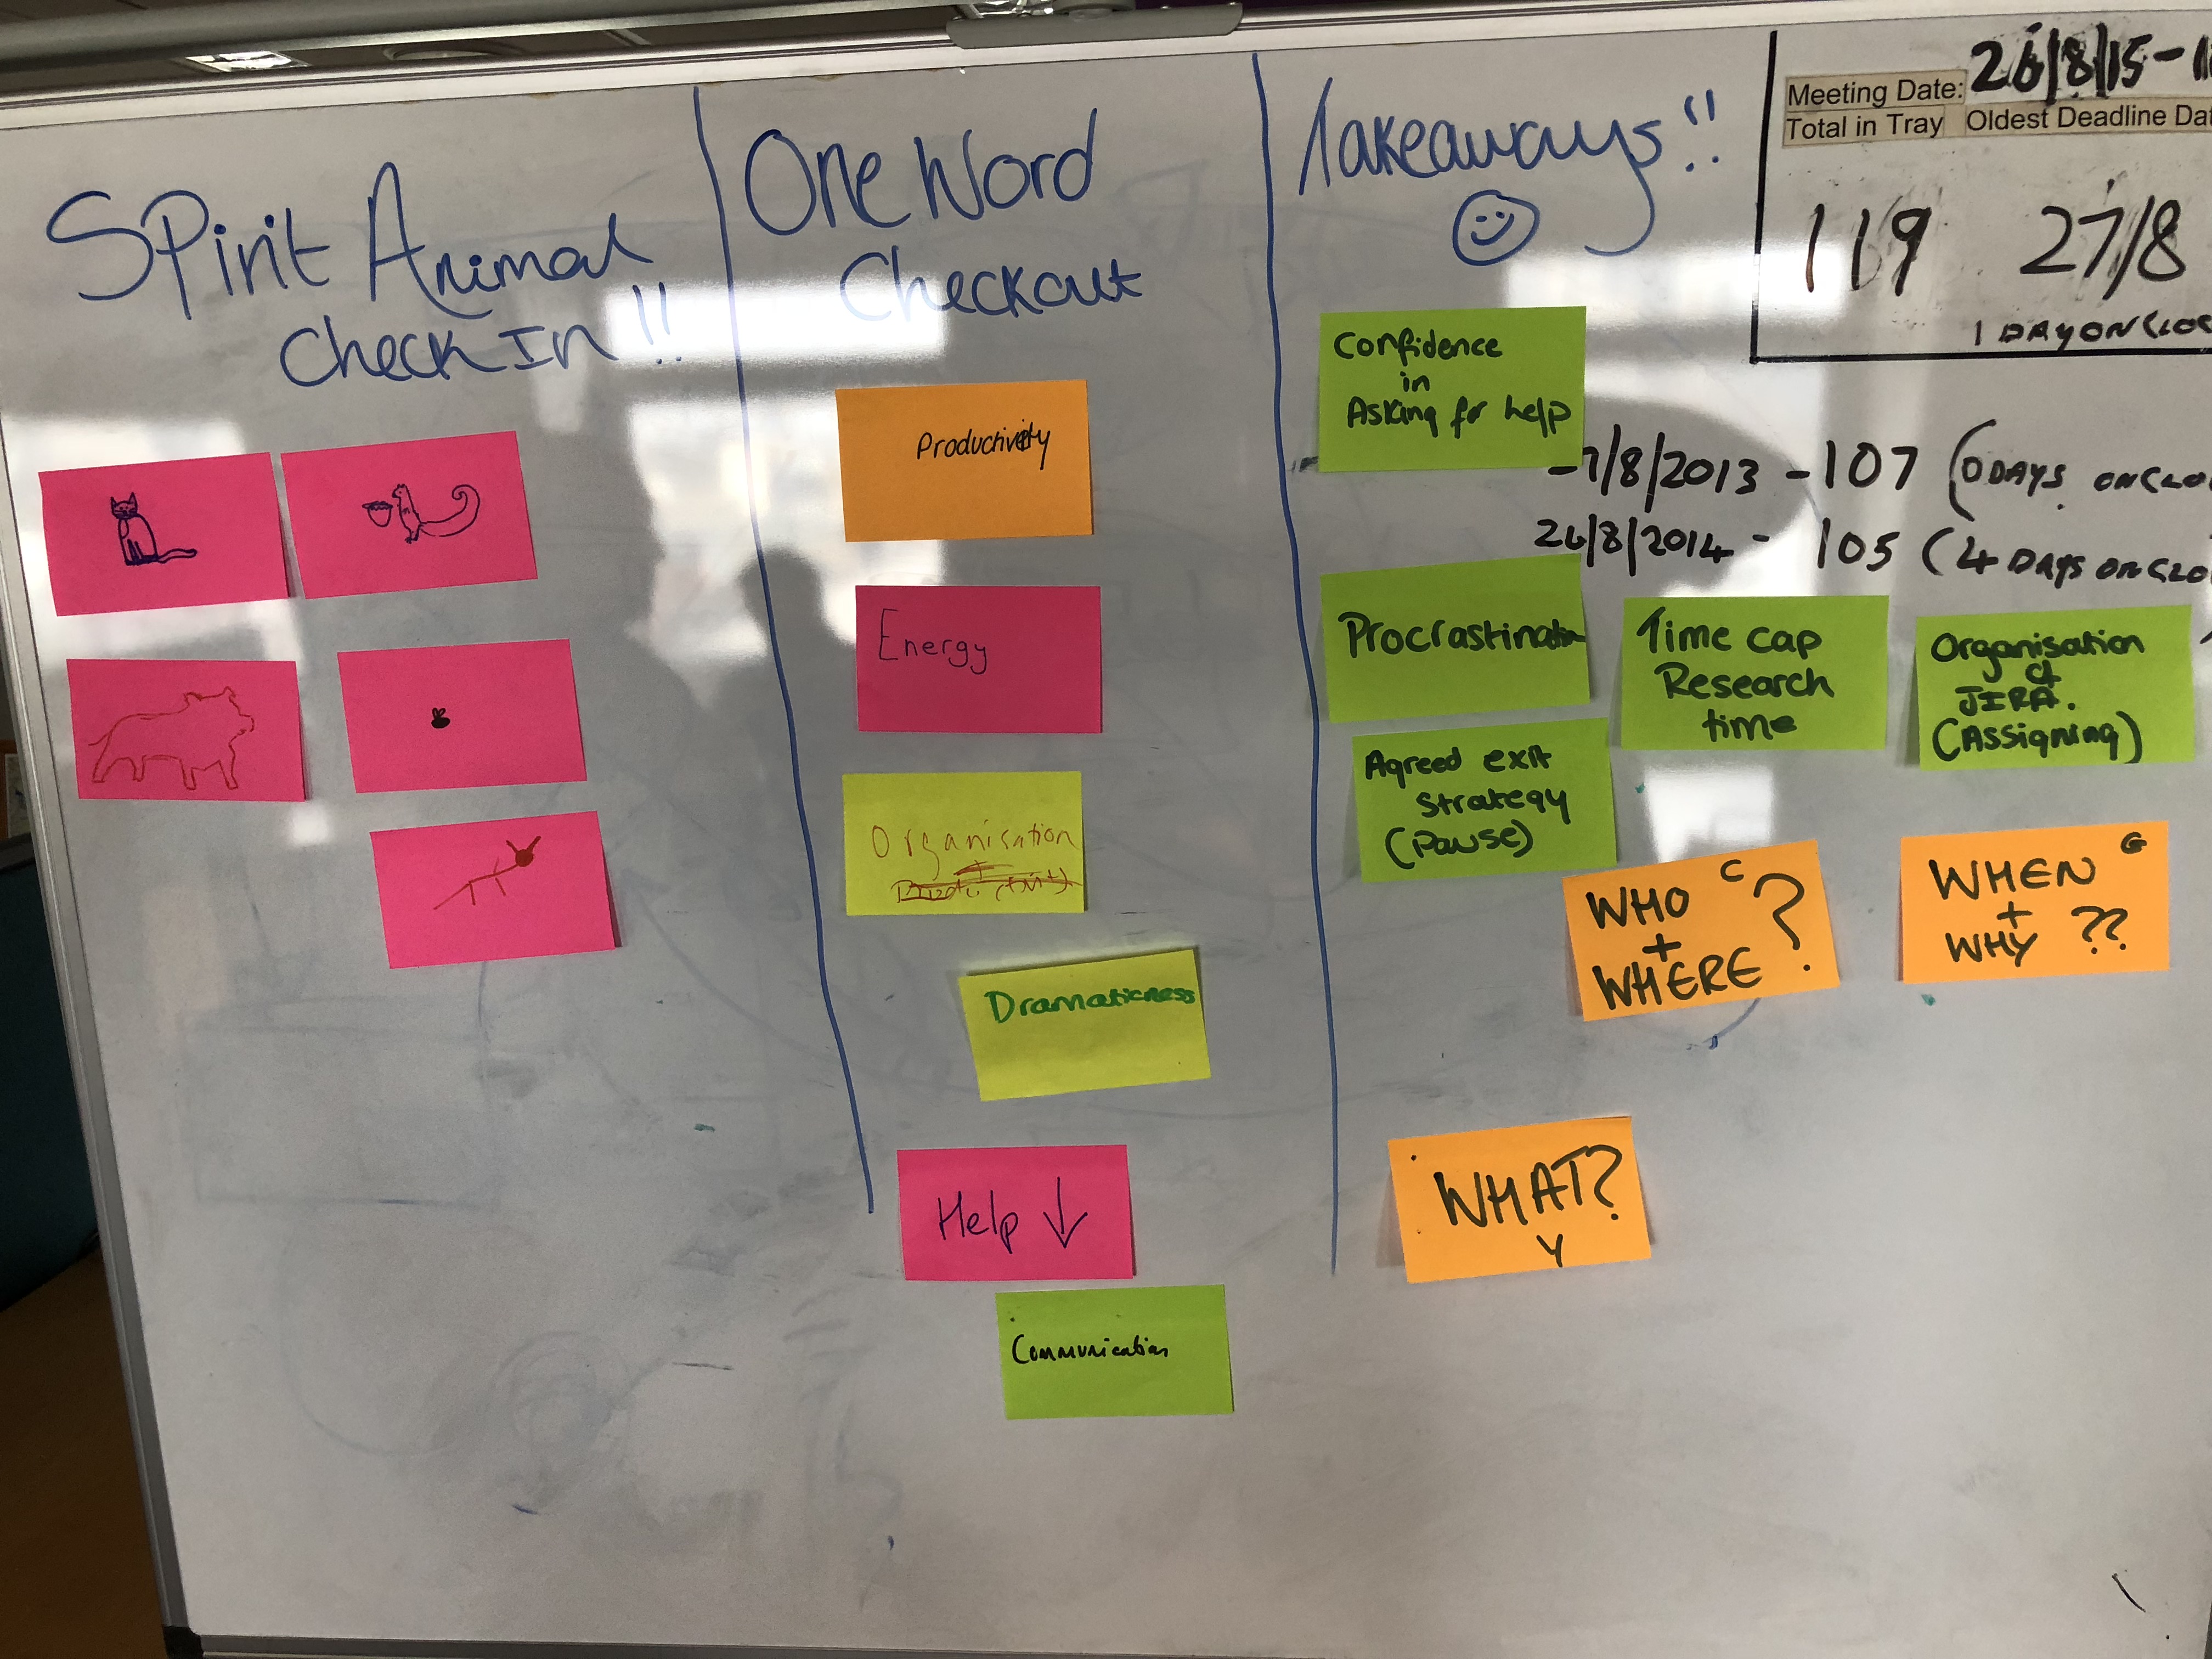 SPirit Animal
Check In!!
One Word
Checkout
Productivity
Energy
Organisation
Dramaticness
Help ↓
Communication
Takeaways!!
Confidence
in
Asking for help
Procrastination
Time cap
Research
time
Organisation
&
JIRA.
(Assigning)
Agreed exit
Strategy
(Pause)
WHO C ?
+
WHERE
WHEN G
+
WHY ??
WHAT?
Y
Meeting Date: 26/8/15 -
Total in Tray Oldest Deadline Dat
119 27/8
1 DAY ON CLOC
7/8/2013 - 107 (0 DAYS ON CLO
26/8/2014 - 105 (4 DAYS ON CLO